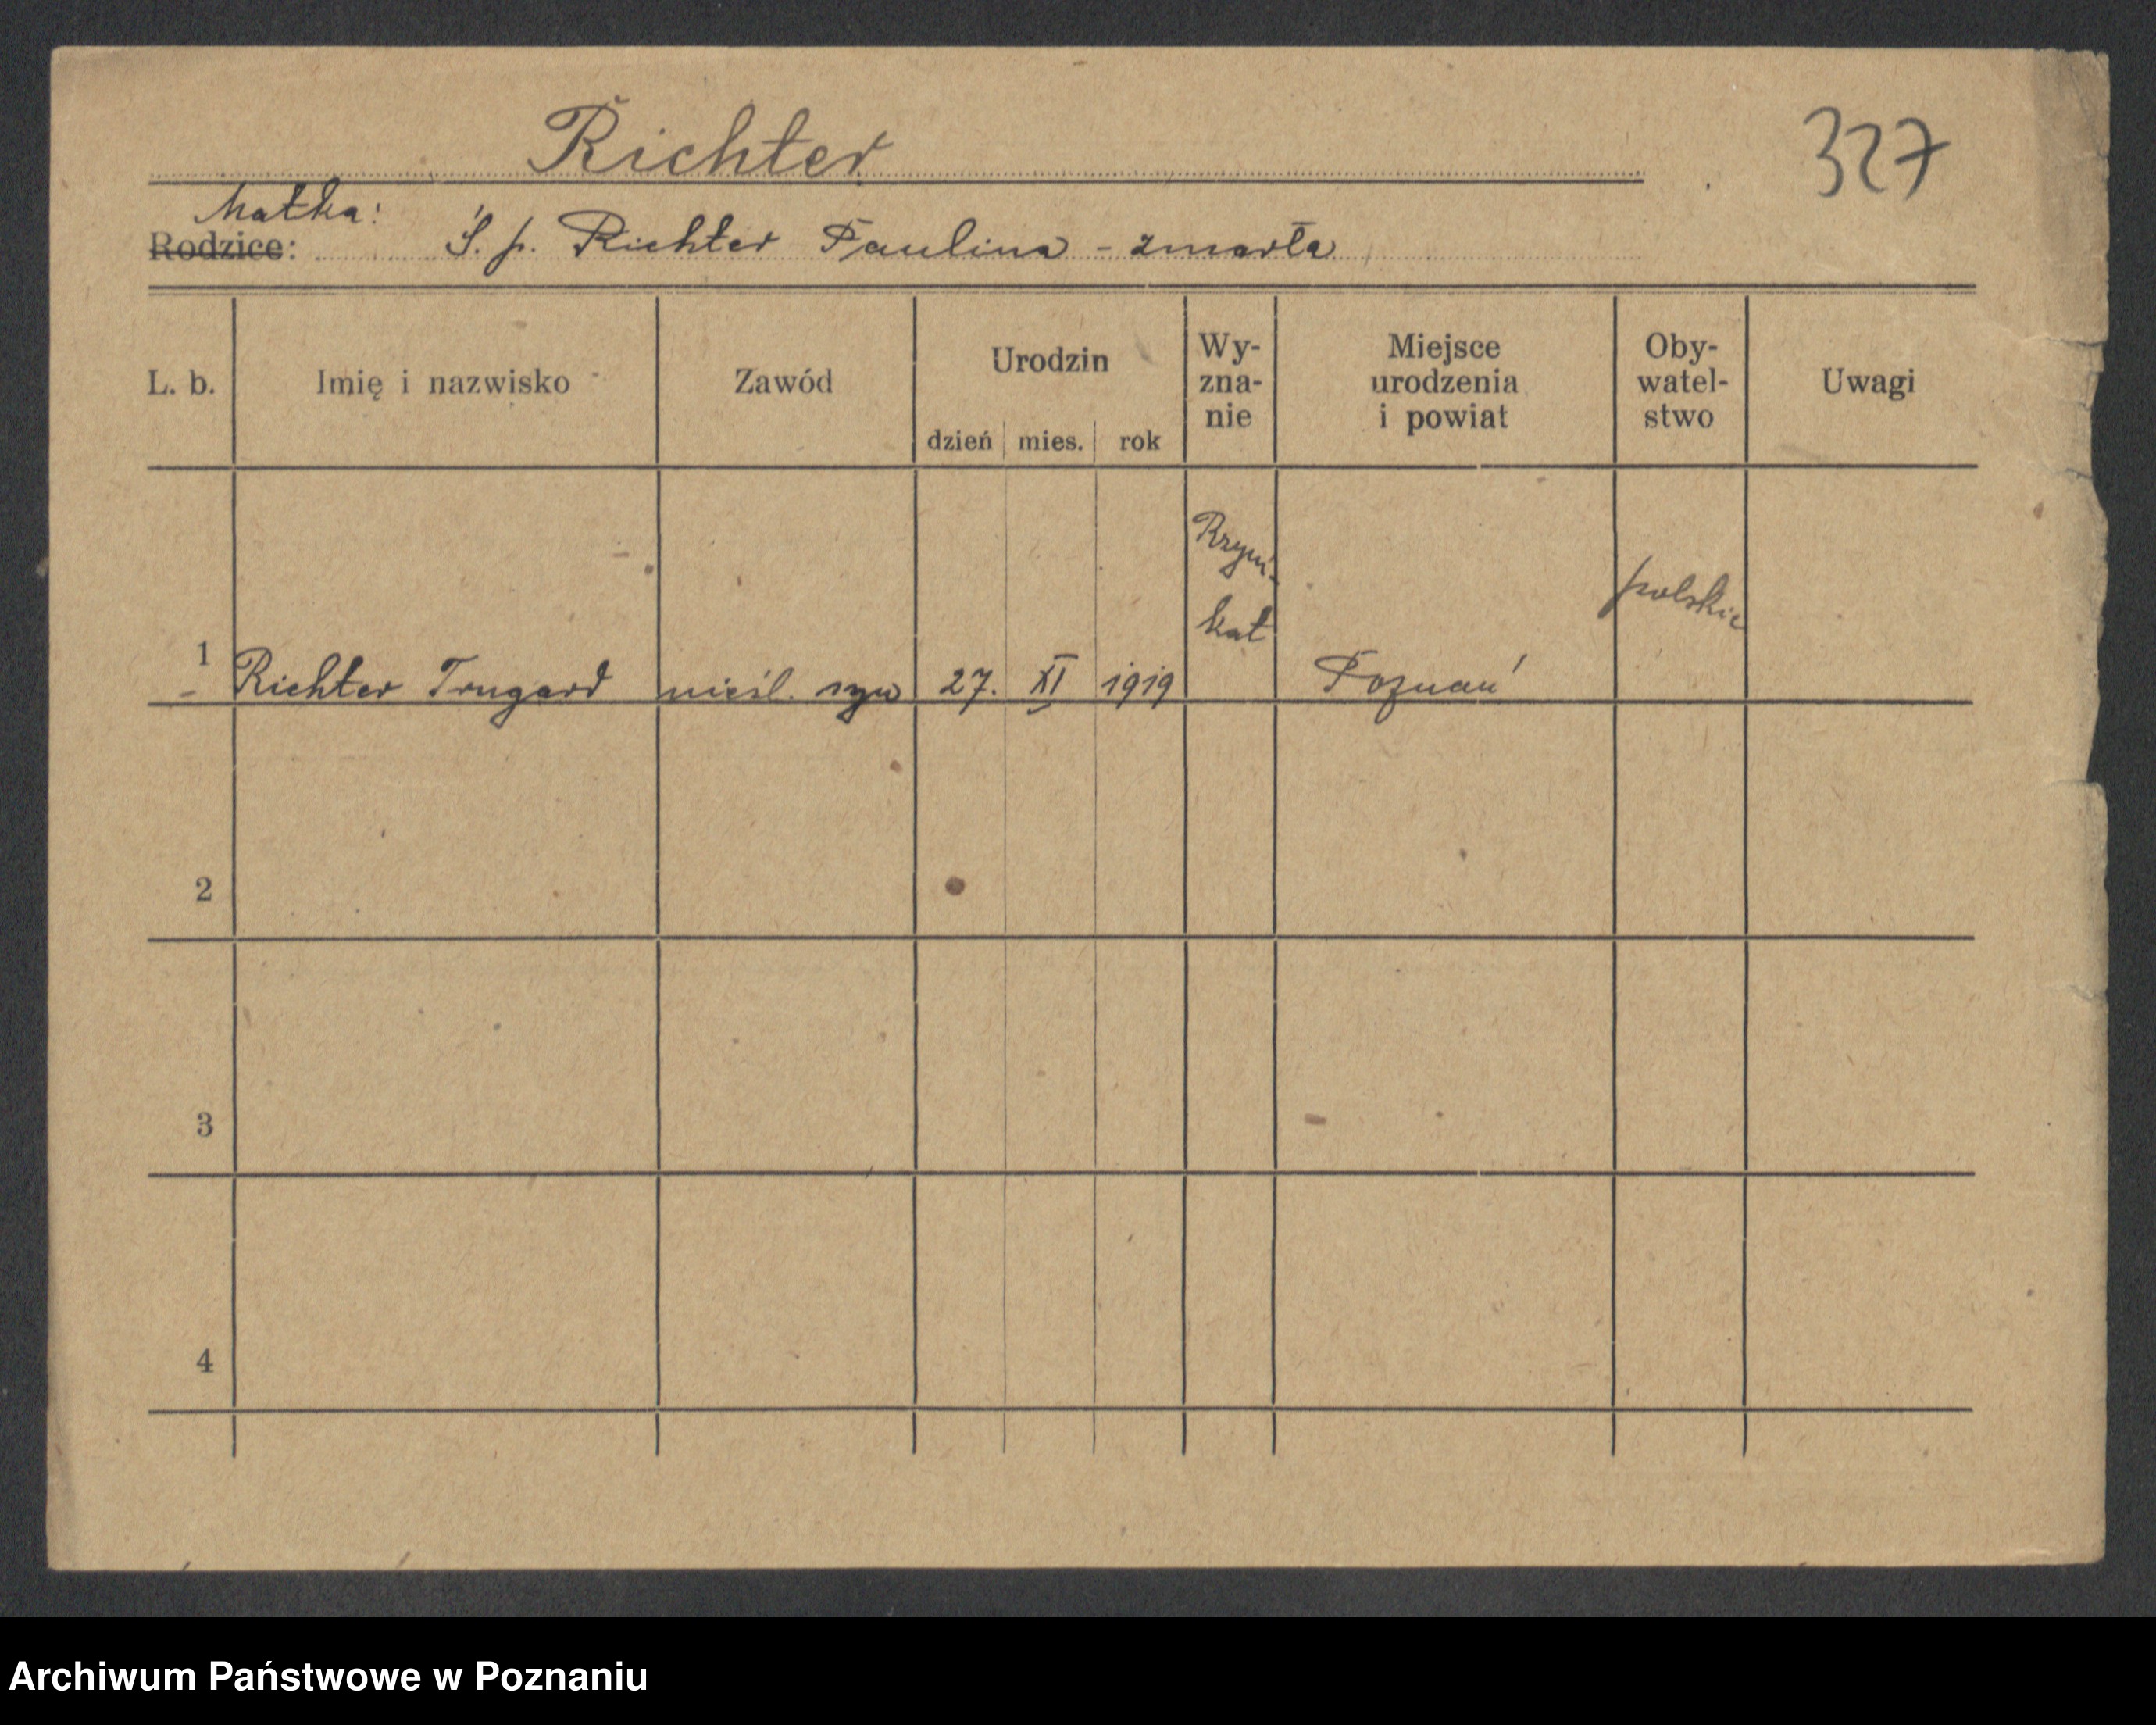 Richter
327
Matka:
Rodzice: Ś. p. Richter Paulina - zmarła
L. b. Imię i nazwisko Zawód Urodzin dzień mies. rok Wy-zna-nie Miejsce urodzenia i powiat Oby-watel-stwo Uwagi
1 Richter Irngard nieśl. syn 27. XI 1919 Rzym.-kat Poznań polskie
2
3
4
Archiwum Państwowe w Poznaniu